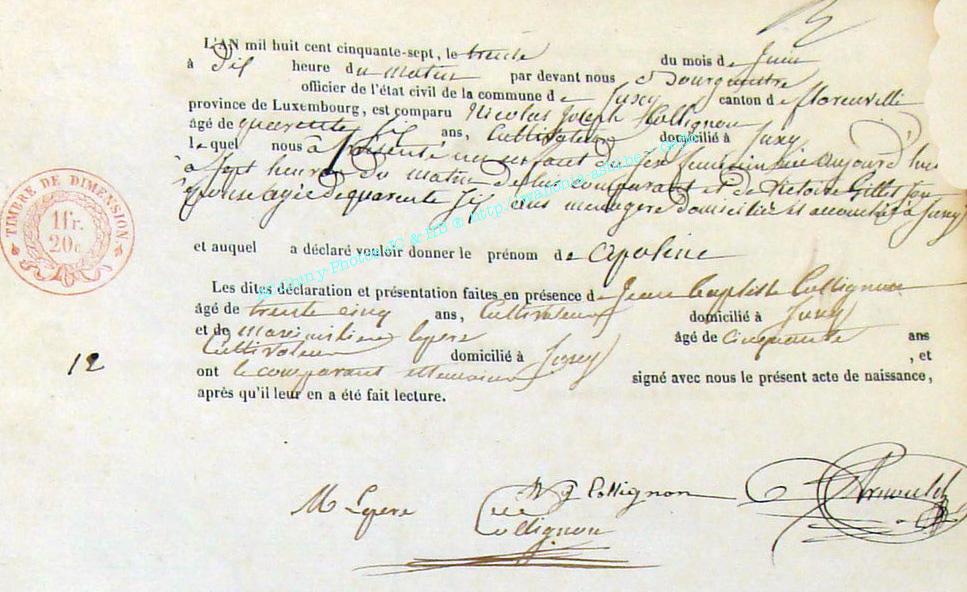 L'AN mil huit cent cinquante-sept, le trente du mois de Juin
à Dix heure du matin par devant nous Bourgmestre
officier de l'état civil de la commune de Jusey canton de florenville
province de Luxembourg, est comparu Nicolas Joseph Collignon
âgé de quarente six ans, Cultivateur domicilié à Juzy
lequel nous à présenté un enfant du sex feminin née aujourd'hui
à sept heures du matin de lui comparant et de Victoire Gillet son
épouse agée de quarente six ans menagere domiciliée et accouchée à Jusey
et auquel a déclaré vouloir donner le prénom de Apoline
Les dites déclaration et présentation faites en présence de Jean baptiste Collignon
âgé de trente cinq ans, Cultivateur domicilié à Jusey
et de Maximilien lepere âgé de Cinquante ans
Cultivateur domicilié à Jusey , et
ont le comparant et temoins signé avec nous le présent acte de naissance,
après qu'il leur en a été fait lecture.
TIMBRE DE DIMENSION
1 fr.
20 c.
12
M Lepere
N J Collignon
Collignon
Arnould